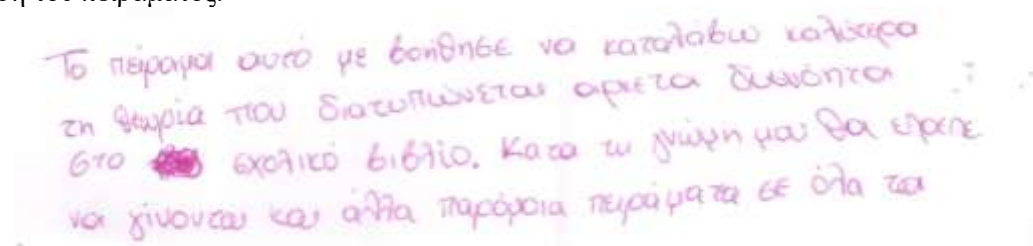 του πειράματος.
Το πείραμα αυτό με βοήθησε να καταλάβω καλύτερα
τη θεωρία που διατυπώνεται αρκετά δυσνόητα
στο σχολικό βιβλίο. Κατα τη γνώμη μου θα επρεπε
να γίνονται και άλλα παρόμοια πειράματα σε όλα τα